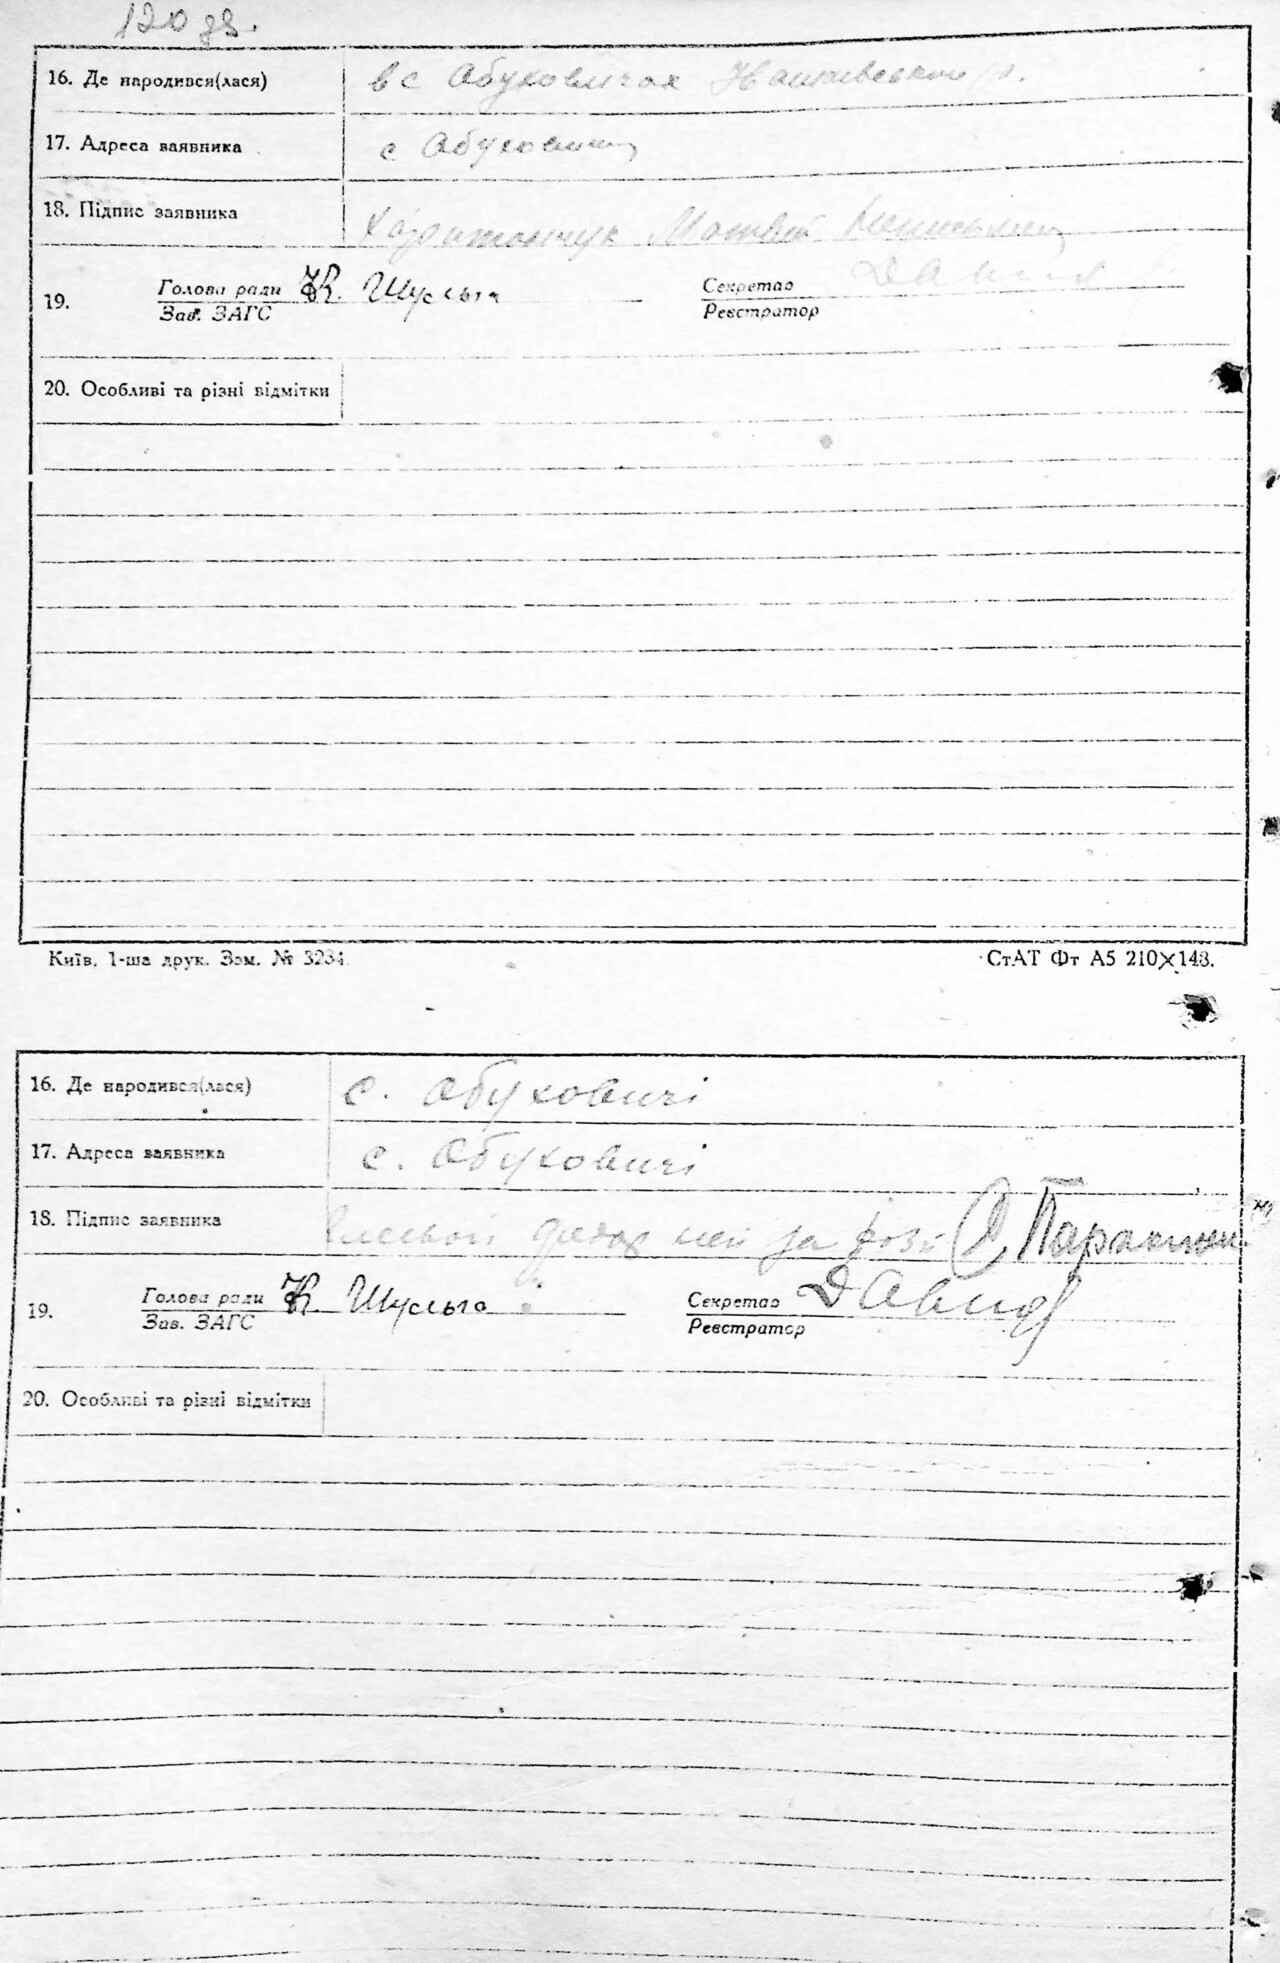 120 зв.
16. Де народився(лася) в с Абуховичах
17. Адреса заявника с Абуховичі
18. Підпис заявника Харитончук Матвій
19. Голова ради К. Шульга Секретар Давид
Зав. ЗАГС Реєстратор
20. Особливі та різні відмітки
Київ, 1-ша друк. Зам. № 3234. СтАТ Фт А5 210×148.
16. Де народився(лася) с. Обуховичі
17. Адреса заявника с. Обуховичі
18. Підпис заявника за
19. Голова ради К. Шульга Секретар Давид
Зав. ЗАГС Реєстратор
20. Особливі та різні відмітки